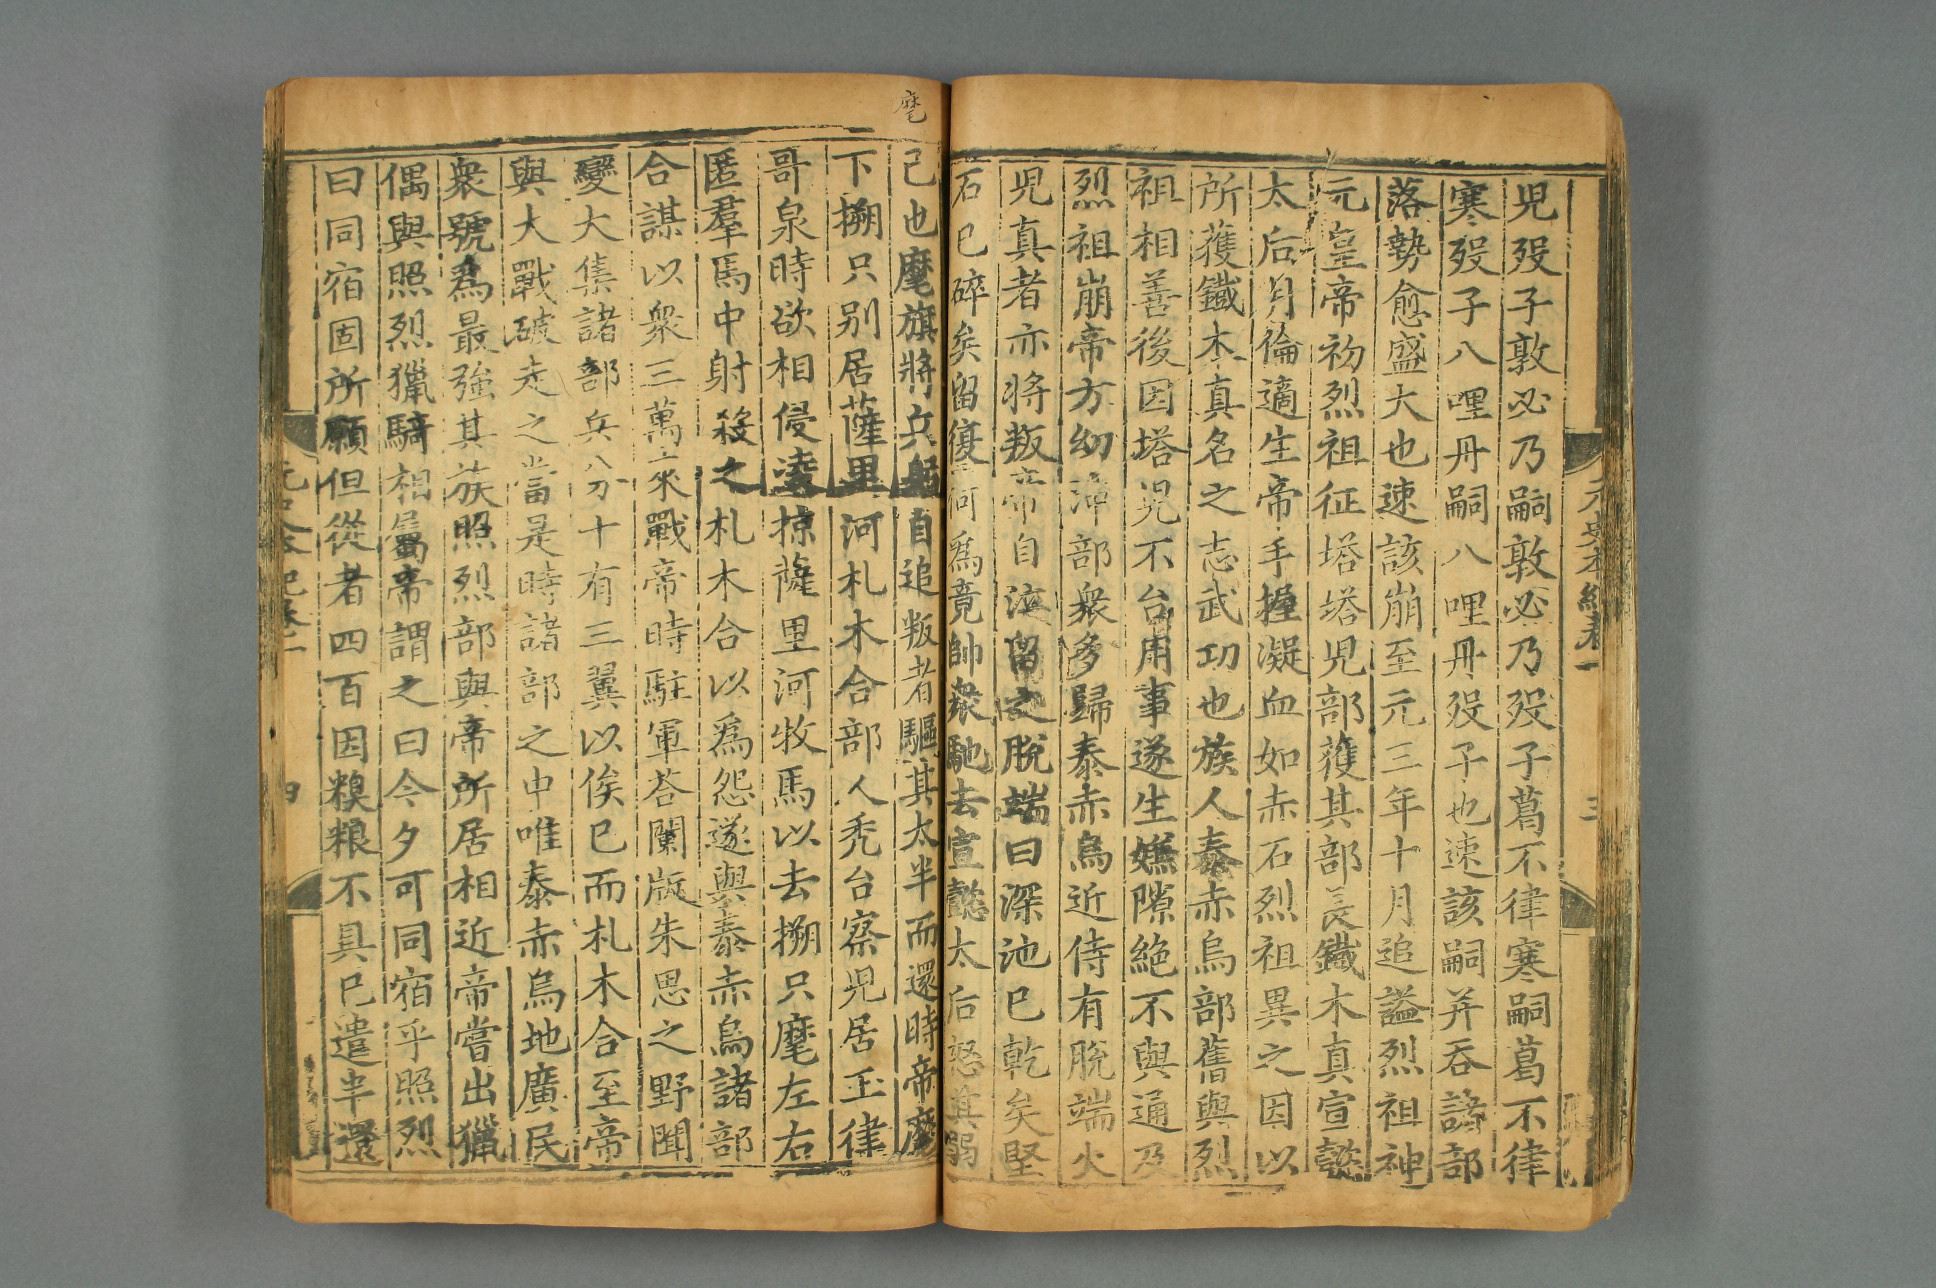 元史本紀卷一
三
兒殁子敦必乃嗣敦必乃殁子葛不律寒嗣葛不律
寒殁子八哩丹嗣八哩丹殁子也速該嗣并吞諸部
落勢愈盛大也速該崩至元三年十月追謚烈祖神
元皇帝初烈祖征塔塔兒部獲其部長鐵木真宣懿
太后月倫適生帝手握凝血如赤石烈祖異之因以
所獲鐵木真名之志武功也族人泰赤烏部舊與烈
祖相善後因塔兒不台用事遂生嫌隙絶不與通及
烈祖崩帝方幼沖部衆多歸泰赤烏近侍有脫端火
兒真者亦將叛帝自泣留之脫端曰深池已乾矣堅
石已碎矣留復何爲竟帥衆馳去宣懿太后怒其弱
麾
己也麾旗將兵躬自追叛者驅其太半而還時帝麾
下搠只别居薩里河札木合部人秃台察兒居玉律
哥泉時欲相侵凌掠薩里河牧馬以去搠只麾左右
匿羣馬中射殺之札木合以爲怨遂與泰赤烏諸部
合謀以衆三萬來戰帝時駐軍荅闌版朱思之野聞
變大集諸部兵分十有三翼以俟已而札木合至帝
與大戰破走之當是時諸部之中唯泰赤烏地廣民
衆號爲最強其族照烈部與帝所居相近帝嘗出獵
偶與照烈獵騎相屬帝謂之曰今夕可同宿乎照烈
曰同宿固所願但從者四百因糗粮不具已遣半還
元史本紀卷一
四